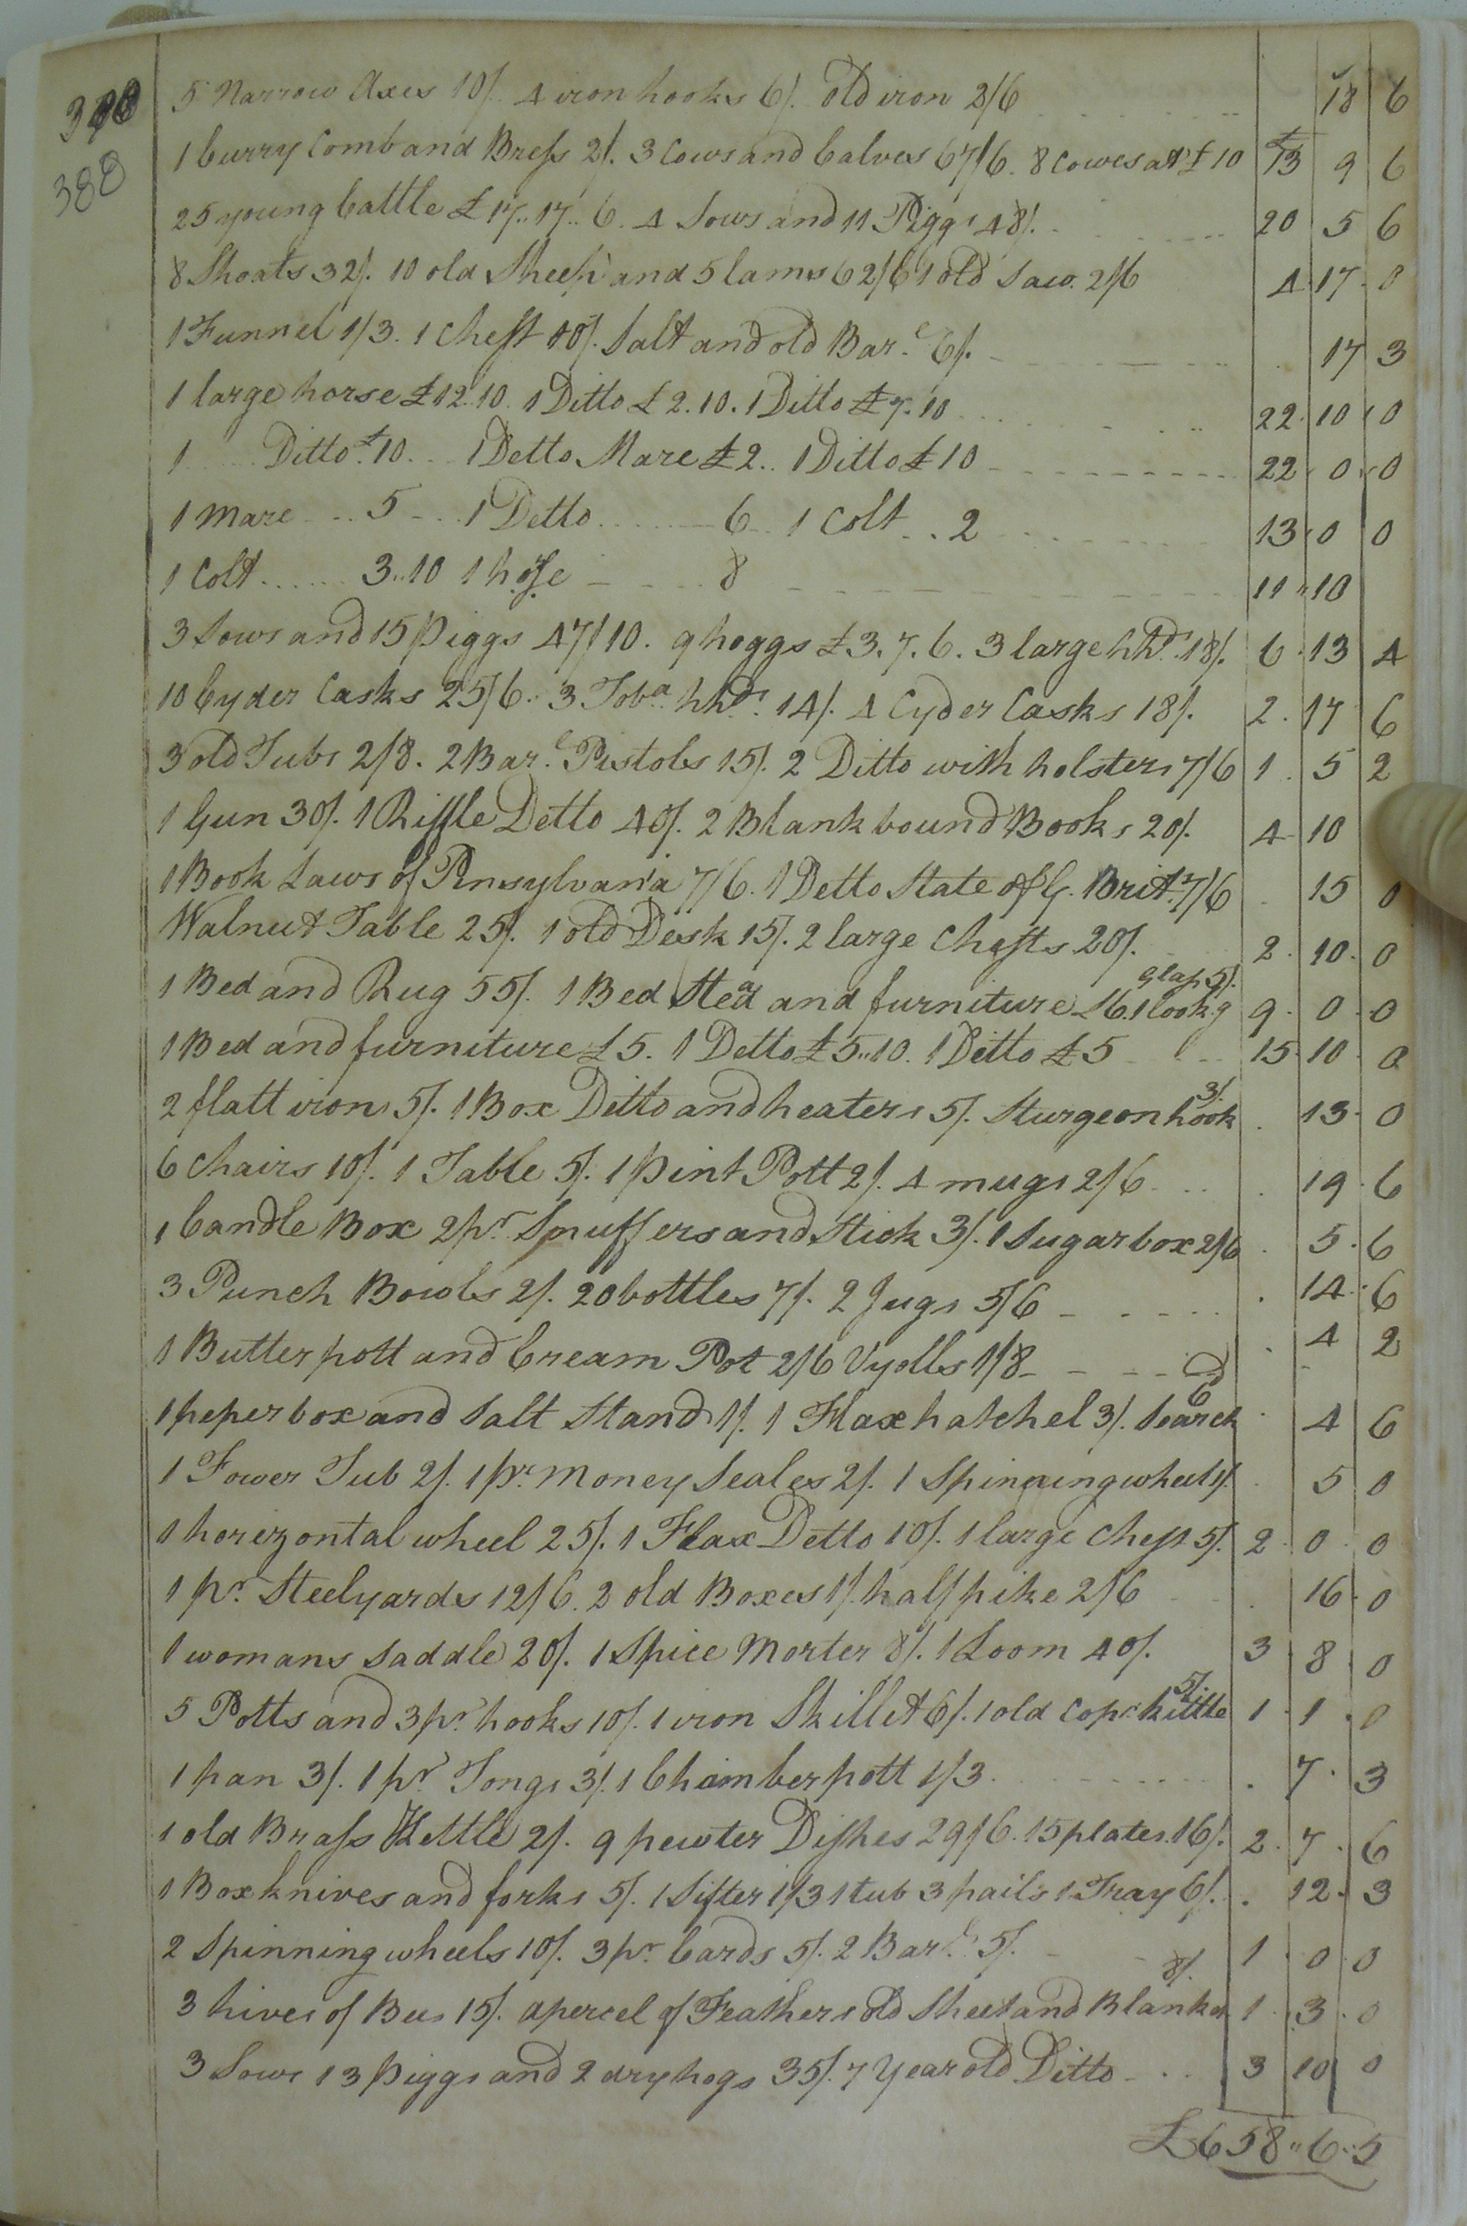 390
388
5 Narrow Axes 10/. 4 iron hooks 6/. old iron 2/6 18 6
1 Curry Comb and Bress 2/. 3 Cows and Calves 67/6. 8 Cowes at £10 £13 9 6
25 young Cattle £17..17..6. 4 Sows and 11 Piggs 48/. 20 5 6
8 Shoats 32/. 10 old Sheep and 5 lams 62/6 1 old Saw. 2/6 4 17 0
1 Funnel 1/3. 1 Chest 10/. Salt and old Bar.l 6/. 17 3
1 large horse £12.10. 1 Ditto £2.10. 1 Ditto £7.10 22 10 0
1 Ditto £10 1 Detto Mare £2.. 1 Ditto £10 22 0 0
1 Mare 5 1 Detto 6 1 Colt 2 13 0 0
1 Colt 3..10 1 hose 8 11 10
3 Sows and 15 Piggs 47/10. 9 hoggs £3.7.6. 3 large hhds. 18/. 6 13 4
10 Cyder Casks 25/6.. 3 Toba. hhds. 14/. 4 Cyder Casks 18/. 2 17 6
3 old Tubs 2/8. 2 Bar.l Pistols 15/. 2 Ditto with holsters 7/6 1 5 2
1 Gun 30/. 1 Riffle Detto 40/. 2 Blank bound Books 20/. 4 10
1 Book Laws of Pensylvania 7/6. 1 Detto State of G. Brit.n 7/6 15 0
Walnut Table 25/. 1 old Desk 15/. 2 large Chests 20/. 2 10 0
1 Bed and Rug 55/. 1 Bed Stead and furniture £6. 1 look.g glass 5/. 9 0 0
1 Bed and furniture £5. 1 Detto £5..10. 1 Ditto £5 15 10 0
2 flatt irons 5/. 1 Box Ditto and heaters 5/. Sturgeon hook 3/. 13 0
6 Chairs 10/. 1 Table 5/. 1 Pint Pott 2/. 4 mugs 2/6 19 6
1 Candle Box 2 pr. Snuffers and Stick 3/. 1 Sugar box 2/6 5 6
3 Punch Bowls 2/. 20 bottles 7/. 2 Jugs 5/6 14 6
1 Butter pott and Cream Pot 2/6 Vyolls 1/8 4 2
1 peper box and Salt Stand 1/. 1 Flax hatchel 3/. Search 6d 4 6
1 Fower Tub 2/. 1 pr. Money Scales 2/. 1 Spinning wheel 1/. 5 0
1 horizontal wheel 25/. 1 Flax Detto 10/. 1 large Chest 5/. 2 0 0
1 pr. Steelyards 12/6. 2 old Boxes 1/. half pike 2/6 16 0
1 womans Saddle 20/. 1 Spice Morter 8/. 1 Loom 40/. 3 8 0
5 Potts and 3 pr. hooks 10/. 1 iron Skillet 6/. 1 old Copr. kittle 5/. 1 1 0
1 pan 3/. 1 pr. Tongs 3/. 1 Chamber pott 1/3 7 3
1 old Brass Kettle 2/. 9 pewter Dishes 29/6. 15 plates. 16/. 2 7 6
1 Box knives and forks 5/. 1 Sifter 1/3 1 tub 3 pails 1 Tray 6/. 12 3
2 Spinning wheels 10/. 3 pr. Cards 5/. 2 Bar.ls 5/. 1 0 0
3 hives of Bees 15/. a percel of Feathers old Sheet and Blanket 8/. 1 3 0
3 Sows 13 Piggs and 2 dry hogs 35/. 7 Year old Ditto 3 10 0
£658..6..5